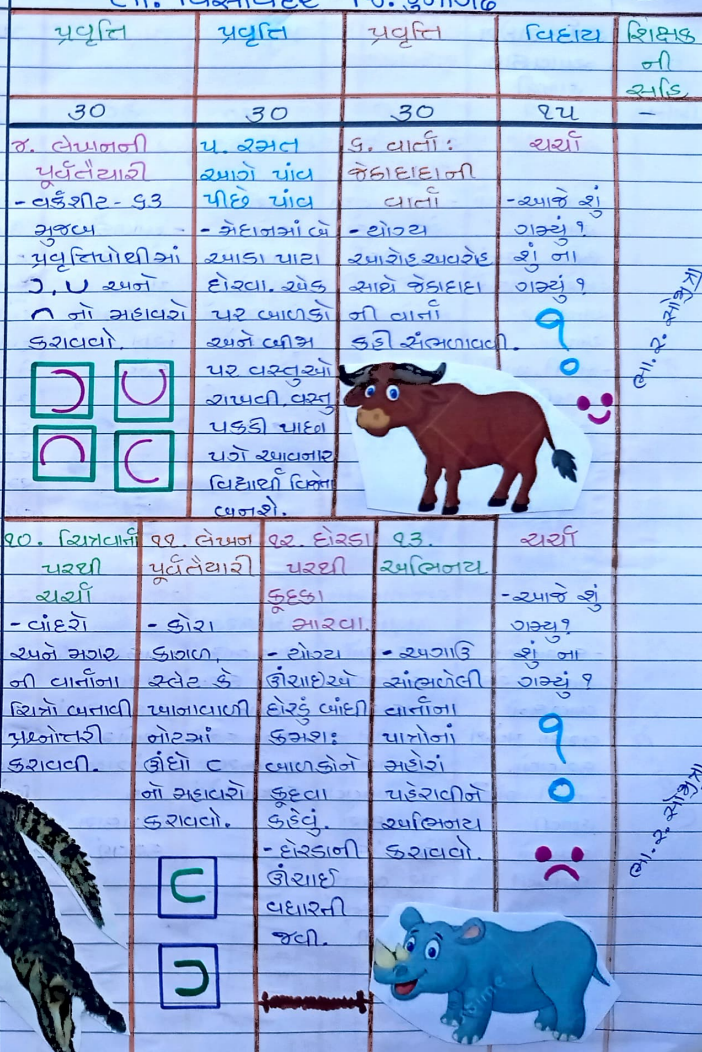 તા. વિસાવદર જિ. જુનાગઢ
પ્રવૃત્તિ
૩૦
૪. લેખનની
પૂર્વતૈયારી
- વર્કશીટ - ૬૩
મુજબ
પ્રવૃત્તિપોથીમાં
અને
નો મહાવરો
કરાવવો.
પ્રવૃત્તિ
૩૦
૫. રમત
આગે પાંવ
પીછે પાંવ
- મેદાનમાં બે
આડા પાટા
દોરવા. એક
પર બાળકો
અને બીજા
પર વસ્તુઓ
રાખવી. વસ્તુ
પકડી પાછા
પગે આવનાર
વિદ્યાર્થી વિજેતા
બનશે.
પ્રવૃત્તિ
૩૦
૬. વાર્તા :
જેકાદાદાની
વાર્તા
- યોગ્ય
આરોહ અવરોહ
સાથે જેકાદાદા
ની વાર્તા
કહી સંભળાવવી.
વિદાય
૧૫
ચર્ચા
- આજે શું
ગમ્યું ?
શું ના
ગમ્યું ?
શિક્ષક
ની
સહિ
-
ભા. ૨. સોજીત્રા
૧૦. ચિત્રવાર્તા
પરથી
ચર્ચા
- વાંદરો
અને મગર
ની વાર્તાના
ચિત્રો બનાવી
પ્રશ્નોત્તરી
કરાવવી.
૧૧. લેખન
પૂર્વતૈયારી
- કોરા
કાગળ,
સ્લેટ કે
ખાનાવાળી
નોટમાં
ઊંધો ⊂
નો મહાવરો
કરાવવો.
૧૨. દોરડા
પરથી
કૂદકા
મારવા.
- યોગ્ય
ઊંચાઈએ
દોરડું બાંધી
ક્રમશઃ
બાળકોને
કૂદવા
કહેવું.
- દોરડાની
ઊંચાઈ
વધારની
જવી.
૧૩.
અભિનય
- અગાઉ
સાંભળેલી
વાર્તાના
પાત્રોનાં
મહોરાં
પહેરાવીને
અભિનય
કરાવવો.
ચર્ચા
- આજે શું
ગમ્યુ?
શું ના
ગમ્યું ?
ભા. ૨. સોજીત્રા